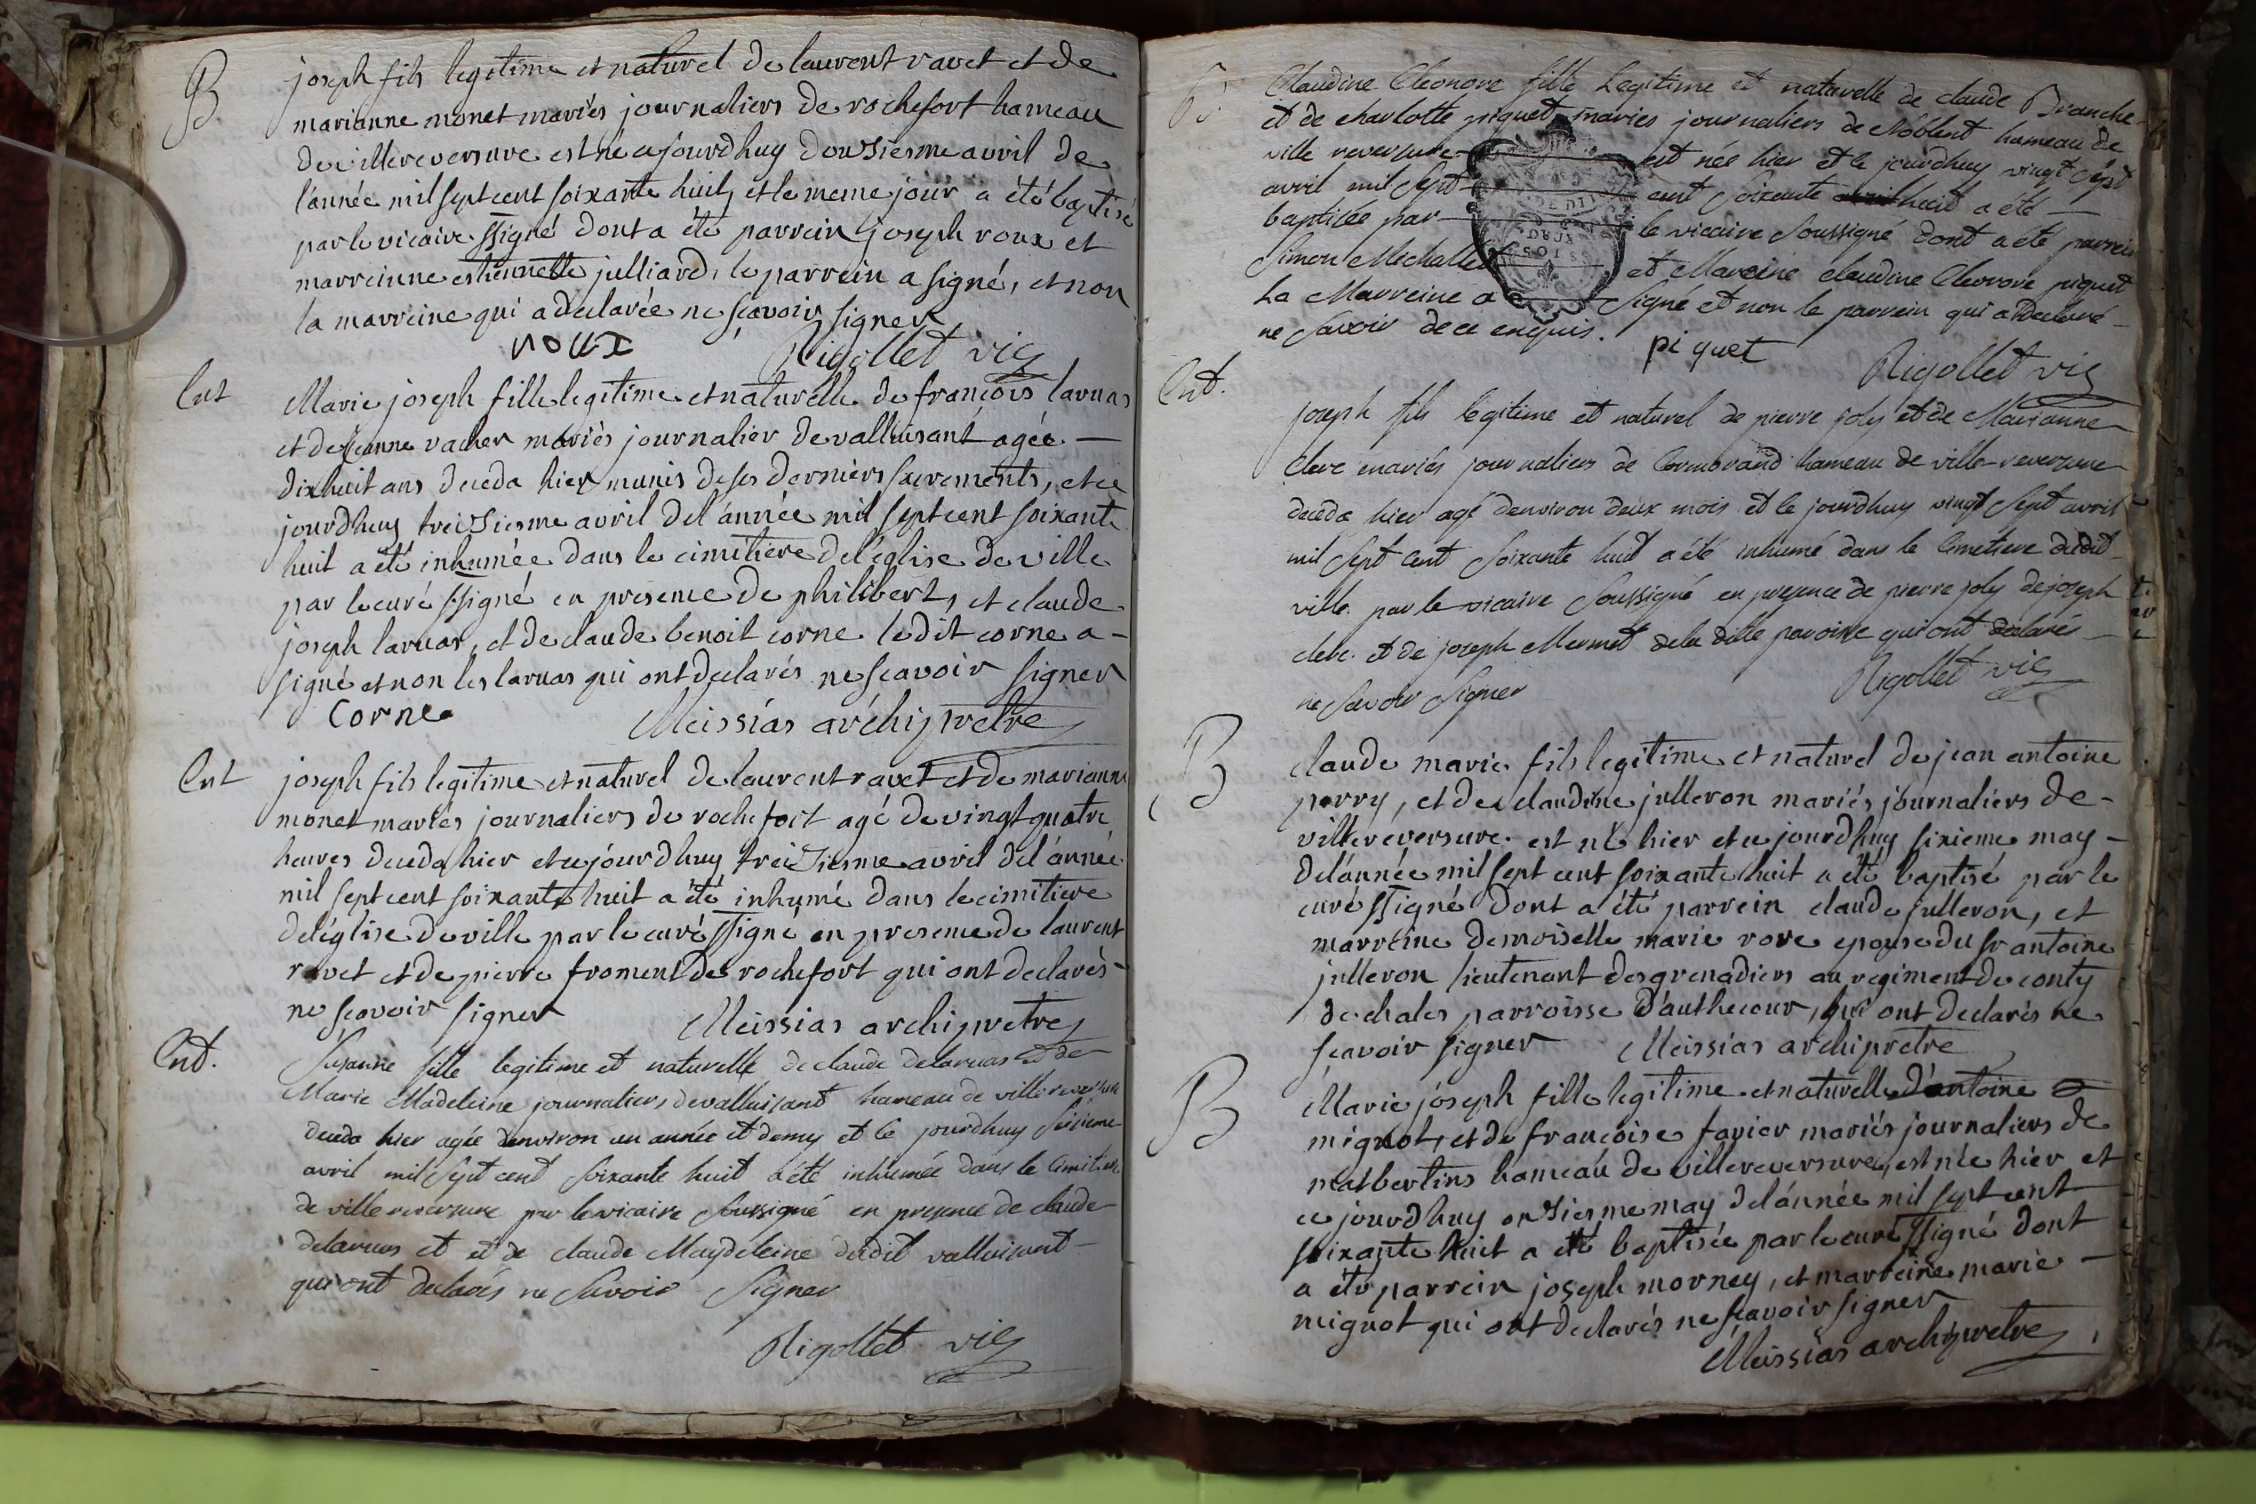 B
joseph fils legitime et naturel de laurent ravet et de
marianne monet mariés journaliers de rochefort hameau
de villereversure est né cejourdhuy douziesme avril de
l'année mil sept cent soixante huit, et le meme jour a été baptisé
par le vicaire ssigné dont a été parrein joseph roux et
marreinne estiennette julliard, le parrein a signé, et non
la marreine qui a declarée ne scavoir signer
roux Rigollet vic
Ent
Marie joseph fille legitime et naturelle de francois laruas
et de jeanne vacher mariés journalier de valluisant agée
dixhuit ans deceda hier munis de ses derniers sacrements, et ce
jourdhuy treiziesme avril de l'année mil sept cent soixante
huit a été inhumée dans le cimitiere de l'église de ville
par le curé ssigné en presence de philibert, et claude
joseph laruas, et de claude benoit corne le dit corne a
signé et non les laruas qui ont declarés ne scavoir signer
Corne Meissias archiprêtre
Ent
joseph fils legitime et naturel de laurent ravet et de marianne
monet mariés journaliers de rochefort agé de vingt quatre
heures deceda hier et cejourdhuy treiziesme avril de l'année
mil sept cent soixante huit a été inhumé dans le cimitiere
de l'église de ville par le curé ssigné en presence de laurent
ravet et de pierre froment de rochefort qui ont declarés
ne scavoir signer Meissias archiprêtre
Ent.
Susanne fille legitime et naturelle de claude delaruas et de
Marie Madeleine journaliers de valluisant hameau de villereversure
deceda hier agée denviron un année et demy et le jourdhuy
avril mil sept cent soixante huit a été inhumée dans le Cimitiere
de villereversure par le vicaire soussigné en presence de claude
delaruas et et de claude Maydeleine dudit valluisant
qui ont declarés ne savoir signer
Rigollet vic
B
Claudine Eleonore fille Legitime et naturelle de claude Branche
et de charlotte piquet mariés journaliers de Noblent hameau de
ville reversure est née hier et le jourdhuy vingt sept
avril mil sept cent soixante huit a été
baptisée par le vicaire soussigné dont a été parrein
Simon et Mareine claudine Eleonore piquet
La Marreine a signé et non le parrein qui a declaré
ne savoir de ce enquis.
piquet Rigollet vic
Ent.
joseph fils legitime et naturel de pierre joly et de Marianne
clerc mariés journaliers de Cormorand hameau de ville reversure
deceda hier agé denviron deux mois et le jourdhuy vingt sept avril
mil sept cent soixante huit a été inhumé dans le Cimetiere dudit
ville par le vicaire soussigné en presence de pierre joly de joseph
clerc et de joseph Mermet de la ditte paroisse qui ont declarés
ne savoir signer Rigollet vic
B
claude marie fils legitime et naturel de jean antoine
perry, et de claudine julleron mariés journaliers de
villereversure est né hier et ce jourdhuy sixieme may
de l'année mil sept cent soixante huit a été baptisé par le
curé ssigné dont a été parrein claude julleron, et
marreine demoiselle marie rore epouse du sr antoine
julleron lieutenant des grenadiers au regiment de conty
de chales parroisse d'authecour, qui ont declarés ne
scavoir signer Meissias archiprêtre
B
Marie joseph fille legitime et naturelle d'antoine
mignot, et de francoise favier mariés journaliers de
hameau de villereversure, est née hier et
ce jourdhuy onziesme may de l'année mil sept cent
soixante huit a été baptisée par le curé ssigné dont
a été parrein joseph morney, et marreine marie
mignot qui ont declarés ne scavoir signer
Meissias archiprêtre